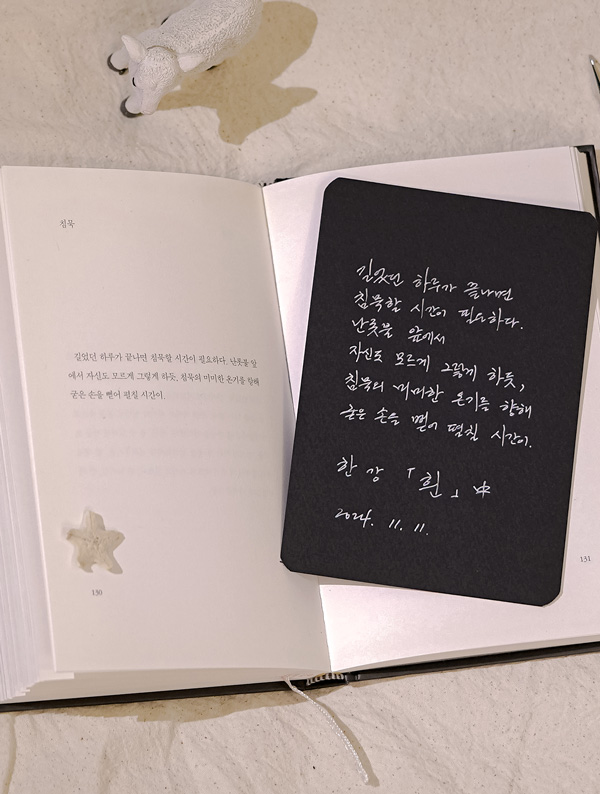 침묵
길었던 하루가 끝나면 침묵할 시간이 필요하다. 난롯불 앞
에서 자신도 모르게 그렇게 하듯, 침묵의 미미한 온기를 향해
굳은 손을 뻗어 펼칠 시간이.
130
길었던 하루가 끝나면
침묵할 시간이 필요하다.
난롯불 앞에서
자신도 모르게 그렇게 하듯,
침묵의 미미한 온기를 향해
굳은 손을 뻗어 펼칠 시간이.
한 강 「흰」 中
2024. 11. 11.
131